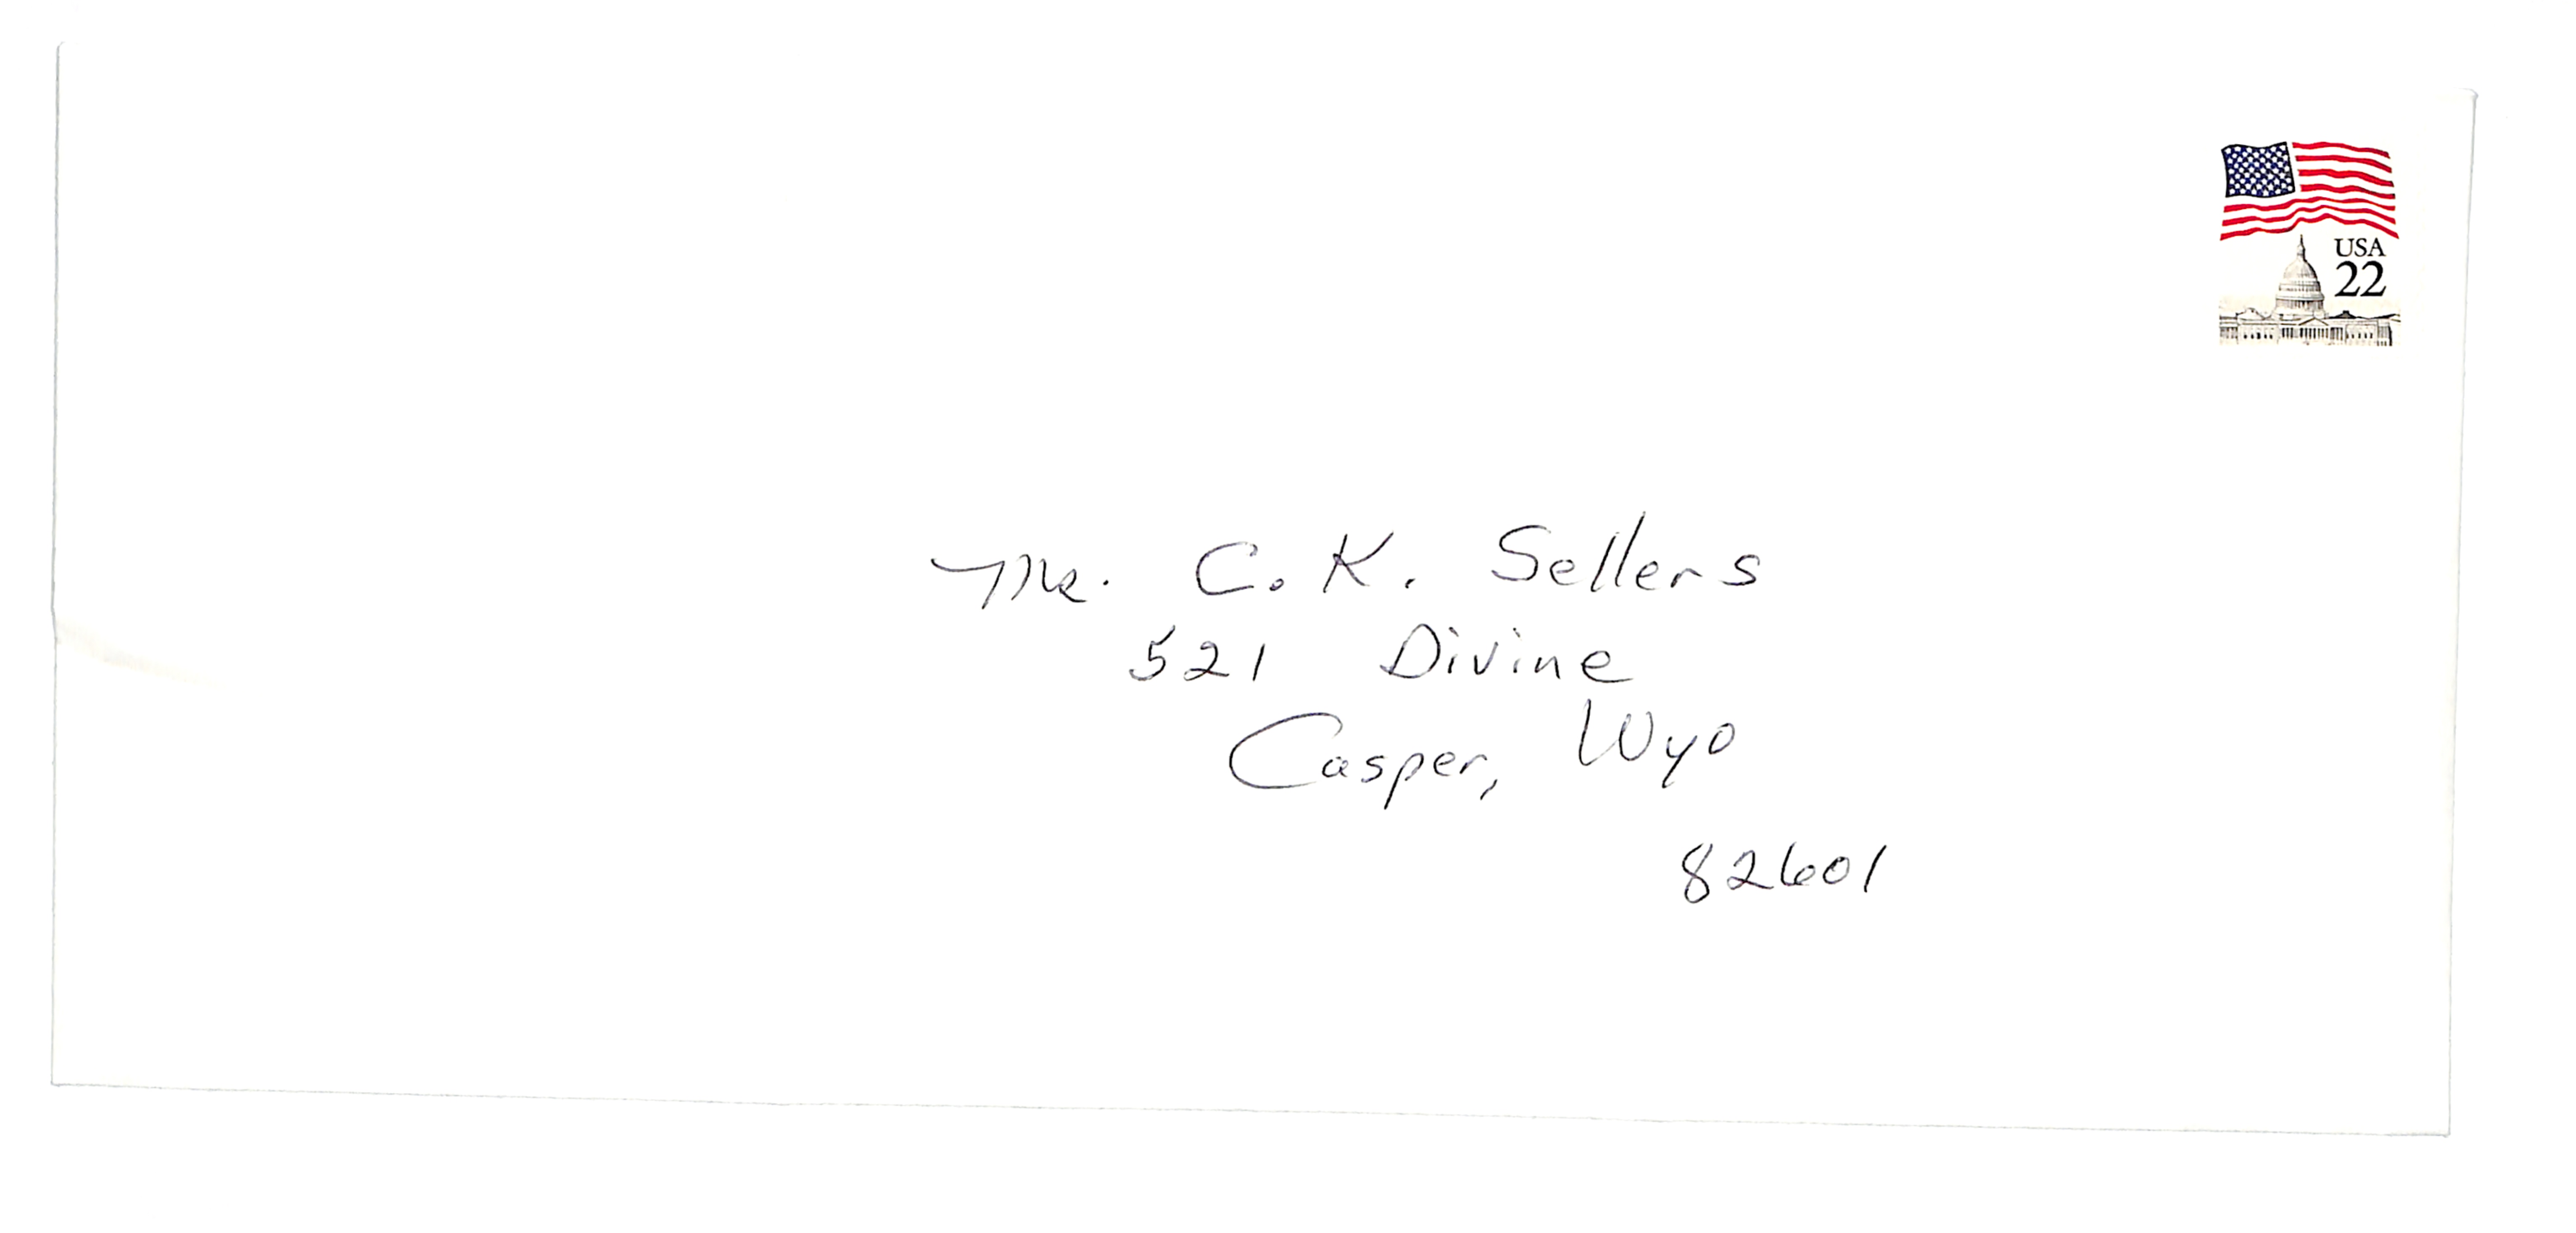 USA
22
Mr. C. K. Sellers
521 Divine
Casper, Wyo
82601